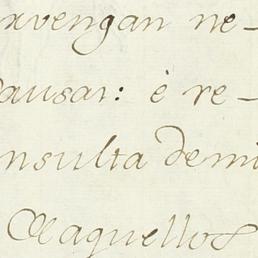 rvengan ne-
causar: è re-
nsulta demi
Daquellos